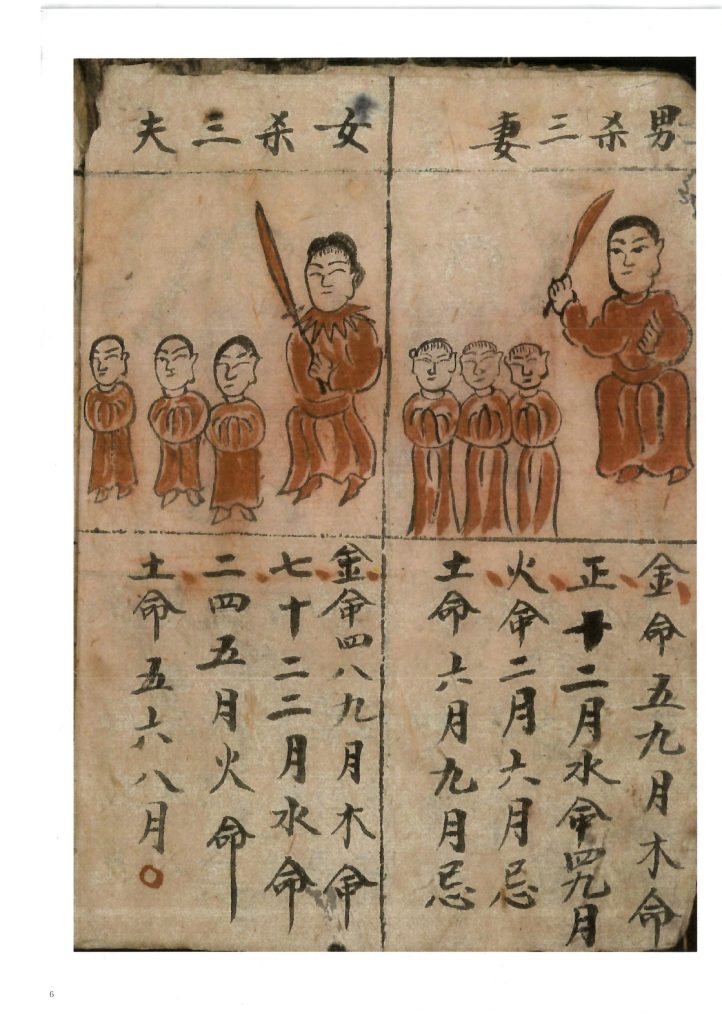 男杀三妻
金命五九月木命
正十二月水命四九月
火命二月六月忌
土命六月九月忌
女杀三夫
金命四八九月木命
七十二二月水命
二四五月火命
土命五六八月
6